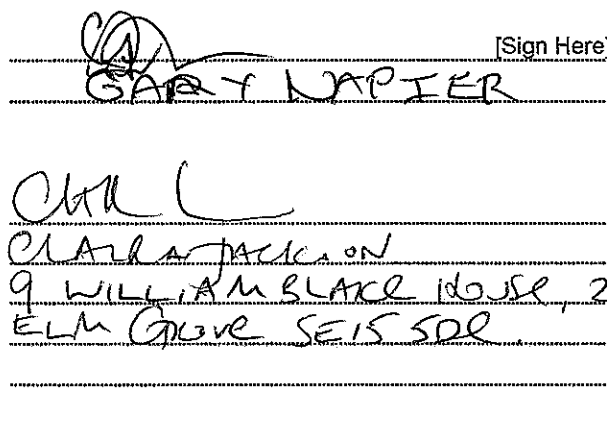 [Sign Here]
GARY NAPIER
CLAIRA JACKSON
9 WILLIAM BLAKE HOUSE, 2
ELM GROVE SE15 5DE.